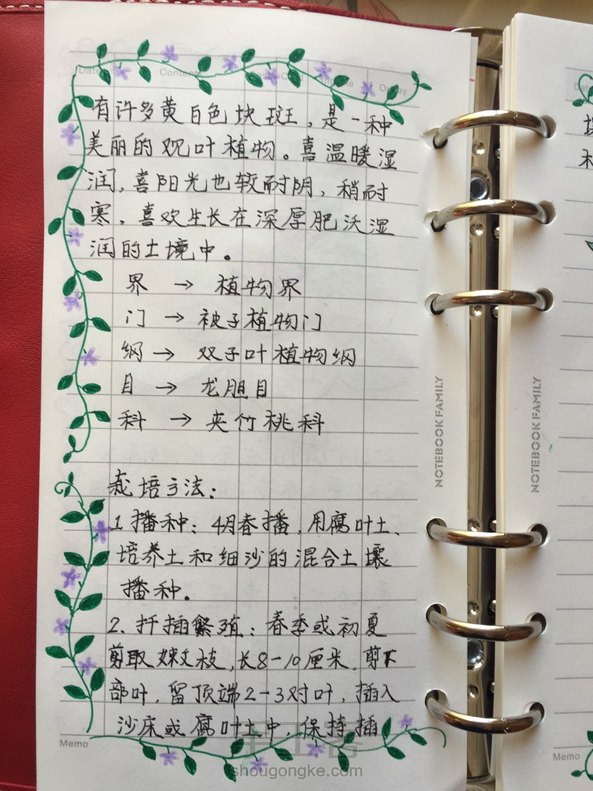 Content
有许多黄白色块斑，是一种
美丽的观叶植物。喜温暖湿
润，喜阳光也较耐阴，稍耐
寒，喜欢生长在深厚肥沃湿
润的土境中。
界 → 植物界
门 → 被子植物门
纲 → 双子叶植物纲
目 → 龙胆目
科 → 夹竹桃科
栽培方法：
1.播种：4月春播，用腐叶土、
培养土和细沙的混合土壤
播种。
2、扦插繁殖：春季或初夏
剪取嫩枝，长8-10厘米，剪下
部叶，留顶端2-3对叶，插入
沙床或腐叶土中，保持插
Memo
shougongke.com
NOTEBOOK FAMILY
NOTEBOOK FAMILY
Memo